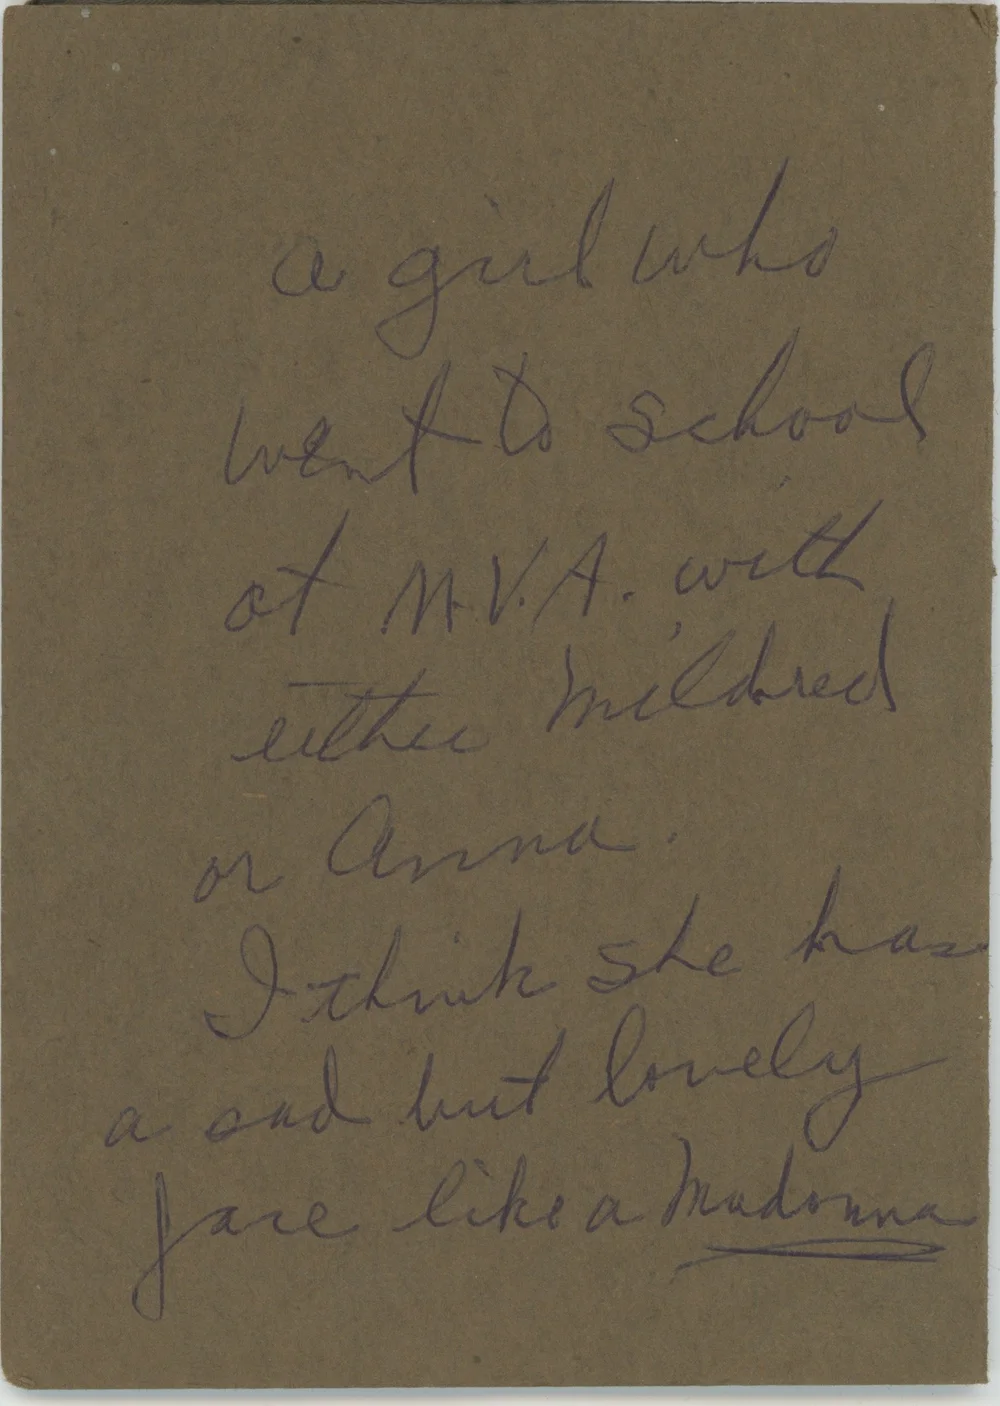 a girl who
went to school
at M.V.A. with
either Mildred
or Anna.
I think she has
a sad but lovely
face like a Madonna